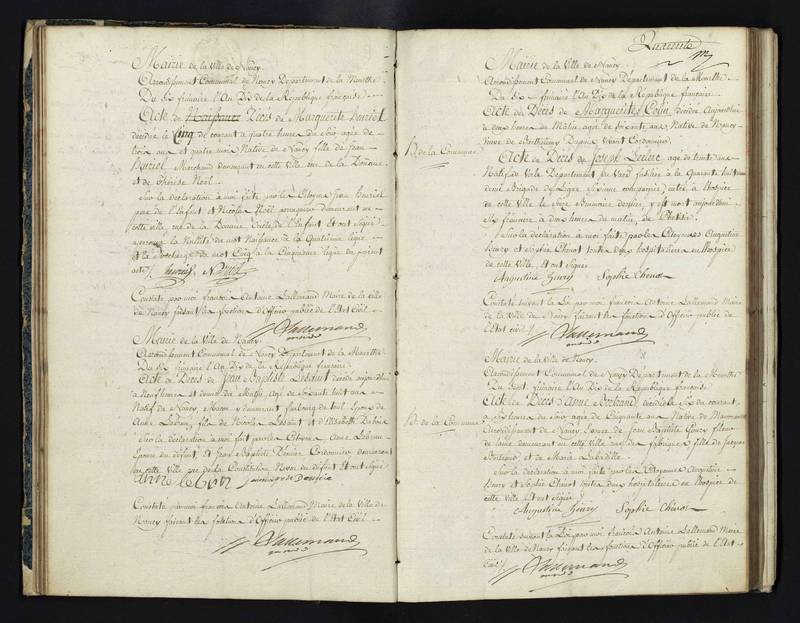 Mairie de la Ville de Nancy.
Arrondissement Communal de Nancy Département de la Meurthe.
Du Six frimaire l'An Dix de la République française.
Acte de Décès de Marguerite Huriel
décédée le Cinq du courant à quatre heures du Soir agée de
trois ans et quatre mois Native de Nancy fille de Jean
Huriel Marchand demeurant en cette Ville rue de la Douane
et de Thérèse Noël.
Sur la déclaration à moi faite par le Citoyen Jean Huriel
père de l'Enfant et Nicolas Noël demeurant en
cette Ville, rue de la Douane, Oncle de l'Enfant et ont Signé
à la Quatrième ligne
et la Surcharge du mot Cinq à la Cinquième ligne du présent
acte
Constaté par moi françois Antoine Lallemand Maire de la ville
de Nancy faisant les fonctions d'Officier public de l'Etat Civil.
Lallemand
Mairie de la Ville de Nancy.
Arrondissement Communal de Nancy Département de la Meurthe
Du Six frimaire l'An Dix de la République française.
Acte de Décès de Jean Baptiste décédé aujourd'hui
à Neuf heures et demie du Matin, agé de Soixante huit ans
Natif de Nancy, Maçon y demeurant faubourg de Epoux de
Anne Lebrun, fils de Nicolas et d'Elisabeth
Sur la déclaration à moi faite par la Citoyenne Anne Lebrun
Epouse du défunt, et Jean Baptiste Cordonnier demeurant
en cette Ville rue de la Constitution, Neveu du défunt et ont Signé
anne le Brun
Constaté par moi françois Antoine Lallemand Maire de la Ville de
Nancy faisant les fonctions d'Officier public de l'Etat Civil.
Lallemand
Quarante
Mairie de la Ville de Nancy.
Arrondissement Communal de Nancy Département de la Meurthe.
Du Six frimaire l'An Dix de la République française.
Acte de Décès de Marguerite Colin, décédée Aujourd'hui
à deux heures du Matin, agée de Soixante ans Native de Nancy
Veuve de Barthelemy vivant Cordonnier.
Acte de Décès de Joseph Leclerc agé de trente ans
Natif de Département du fusilier à la Quarante huitième
demi Brigade de Ligne, Sixième compagnie, entré à l'hospice
de cette Ville le Seize Brumaire dernier, y est mort aujourd'hui
Six frimaire à deux heures du matin, de Phtisie.
Sur la déclaration à moi faite par les Citoyennes Augustine
Henry et Sophie Chenot toutes deux hospitalières en l'hospice
de cette Ville, et ont Signé
Augustine henry Sophie Chenot
Constaté suivant la Loi par moi françois Antoine Lallemand Maire
de la Ville de Nancy faisant les fonctions d'Officier public de
l'Etat Civil.
Lallemand
Mairie de la Ville de Nancy.
Arrondissement Communal de Nancy Département de la Meurthe
Du Sept frimaire l'An Dix de la République française.
de la Commune
Acte de Décès d'Anne Bertrand décédée le Six du courant,
à Six heures du Soir agée de Cinquante ans Native de
Arrondissement de Nancy Epouse de Jean Baptiste Goury fileur
de laine demeurant en cette Ville, rue de la fabrique, fille de
Bertrand, et de Marie
Sur la déclaration à moi faite par les Citoyennes Augustine
Henry et Sophie Chenot toutes deux hospitalières en l'hospice de
cette Ville et ont Signé
Augustine henry Sophie Chenot
Constaté suivant la Loi par moi françois Antoine Lallemand Maire
de la Ville de Nancy faisant les fonctions d'Officier public de l'Etat
Civil.
Lallemand